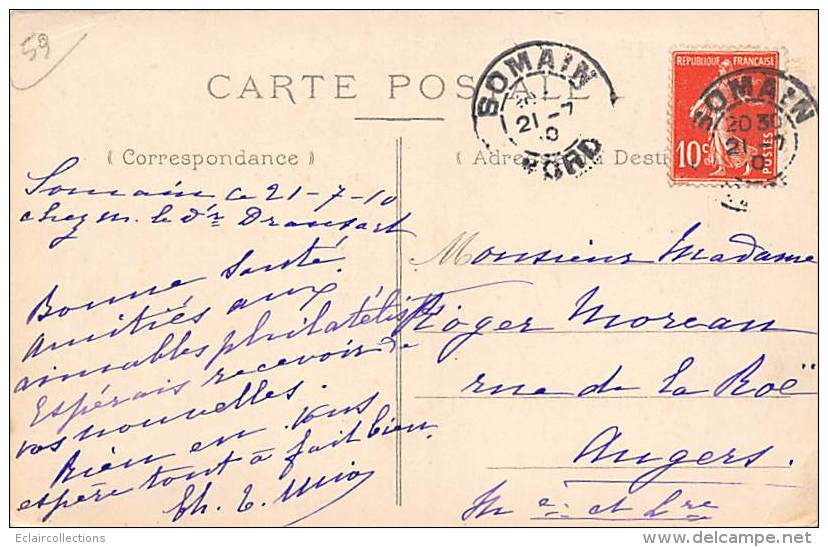 59
CARTE POSTALE
SOMAIN
21-7
10
NORD
REPUBLIQUE FRANÇAISE
10c
POSTES
SOMAIN
20 30
21-7
10
( Correspondance )
( Adresse du Destinataire )
Somain ce 21-7-10
chez m. le Dr Dransart
Bonne Santé
Amitiés aux
aimables philatélistes
Espérais recevoir de
vos nouvelles.
Rien en vous
espère tout à fait bien
Monsieur Madame
Roger Moreau
rue de la Roë
Angers.
Me et Lre
Eclaircollections
delcampe.net